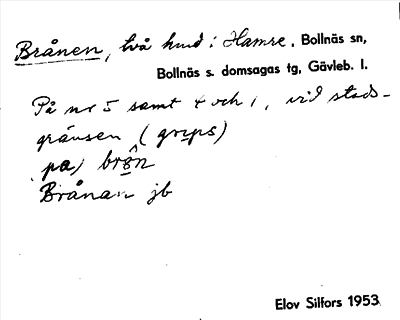 Brånen, två hmd i Hamre, Bollnäs sn,
Bollnäs s. domsagas tg, Gävleb. l.
På nr 5 samt 4 och 1, vid stads-
gränsen (grips)
pa) brộn
Brånan jb
Elov Silfors 1953